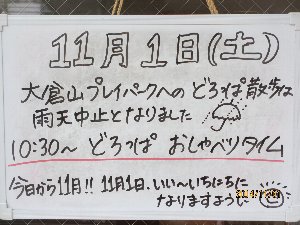 11月1日(土)
大倉山プレイパークへの どろっぱ散歩は
雨天中止となりました
10:30〜 どろっぱ おしゃべりタイム
今日から11月!! 11月1日、いい〜いちにちに
なりますように